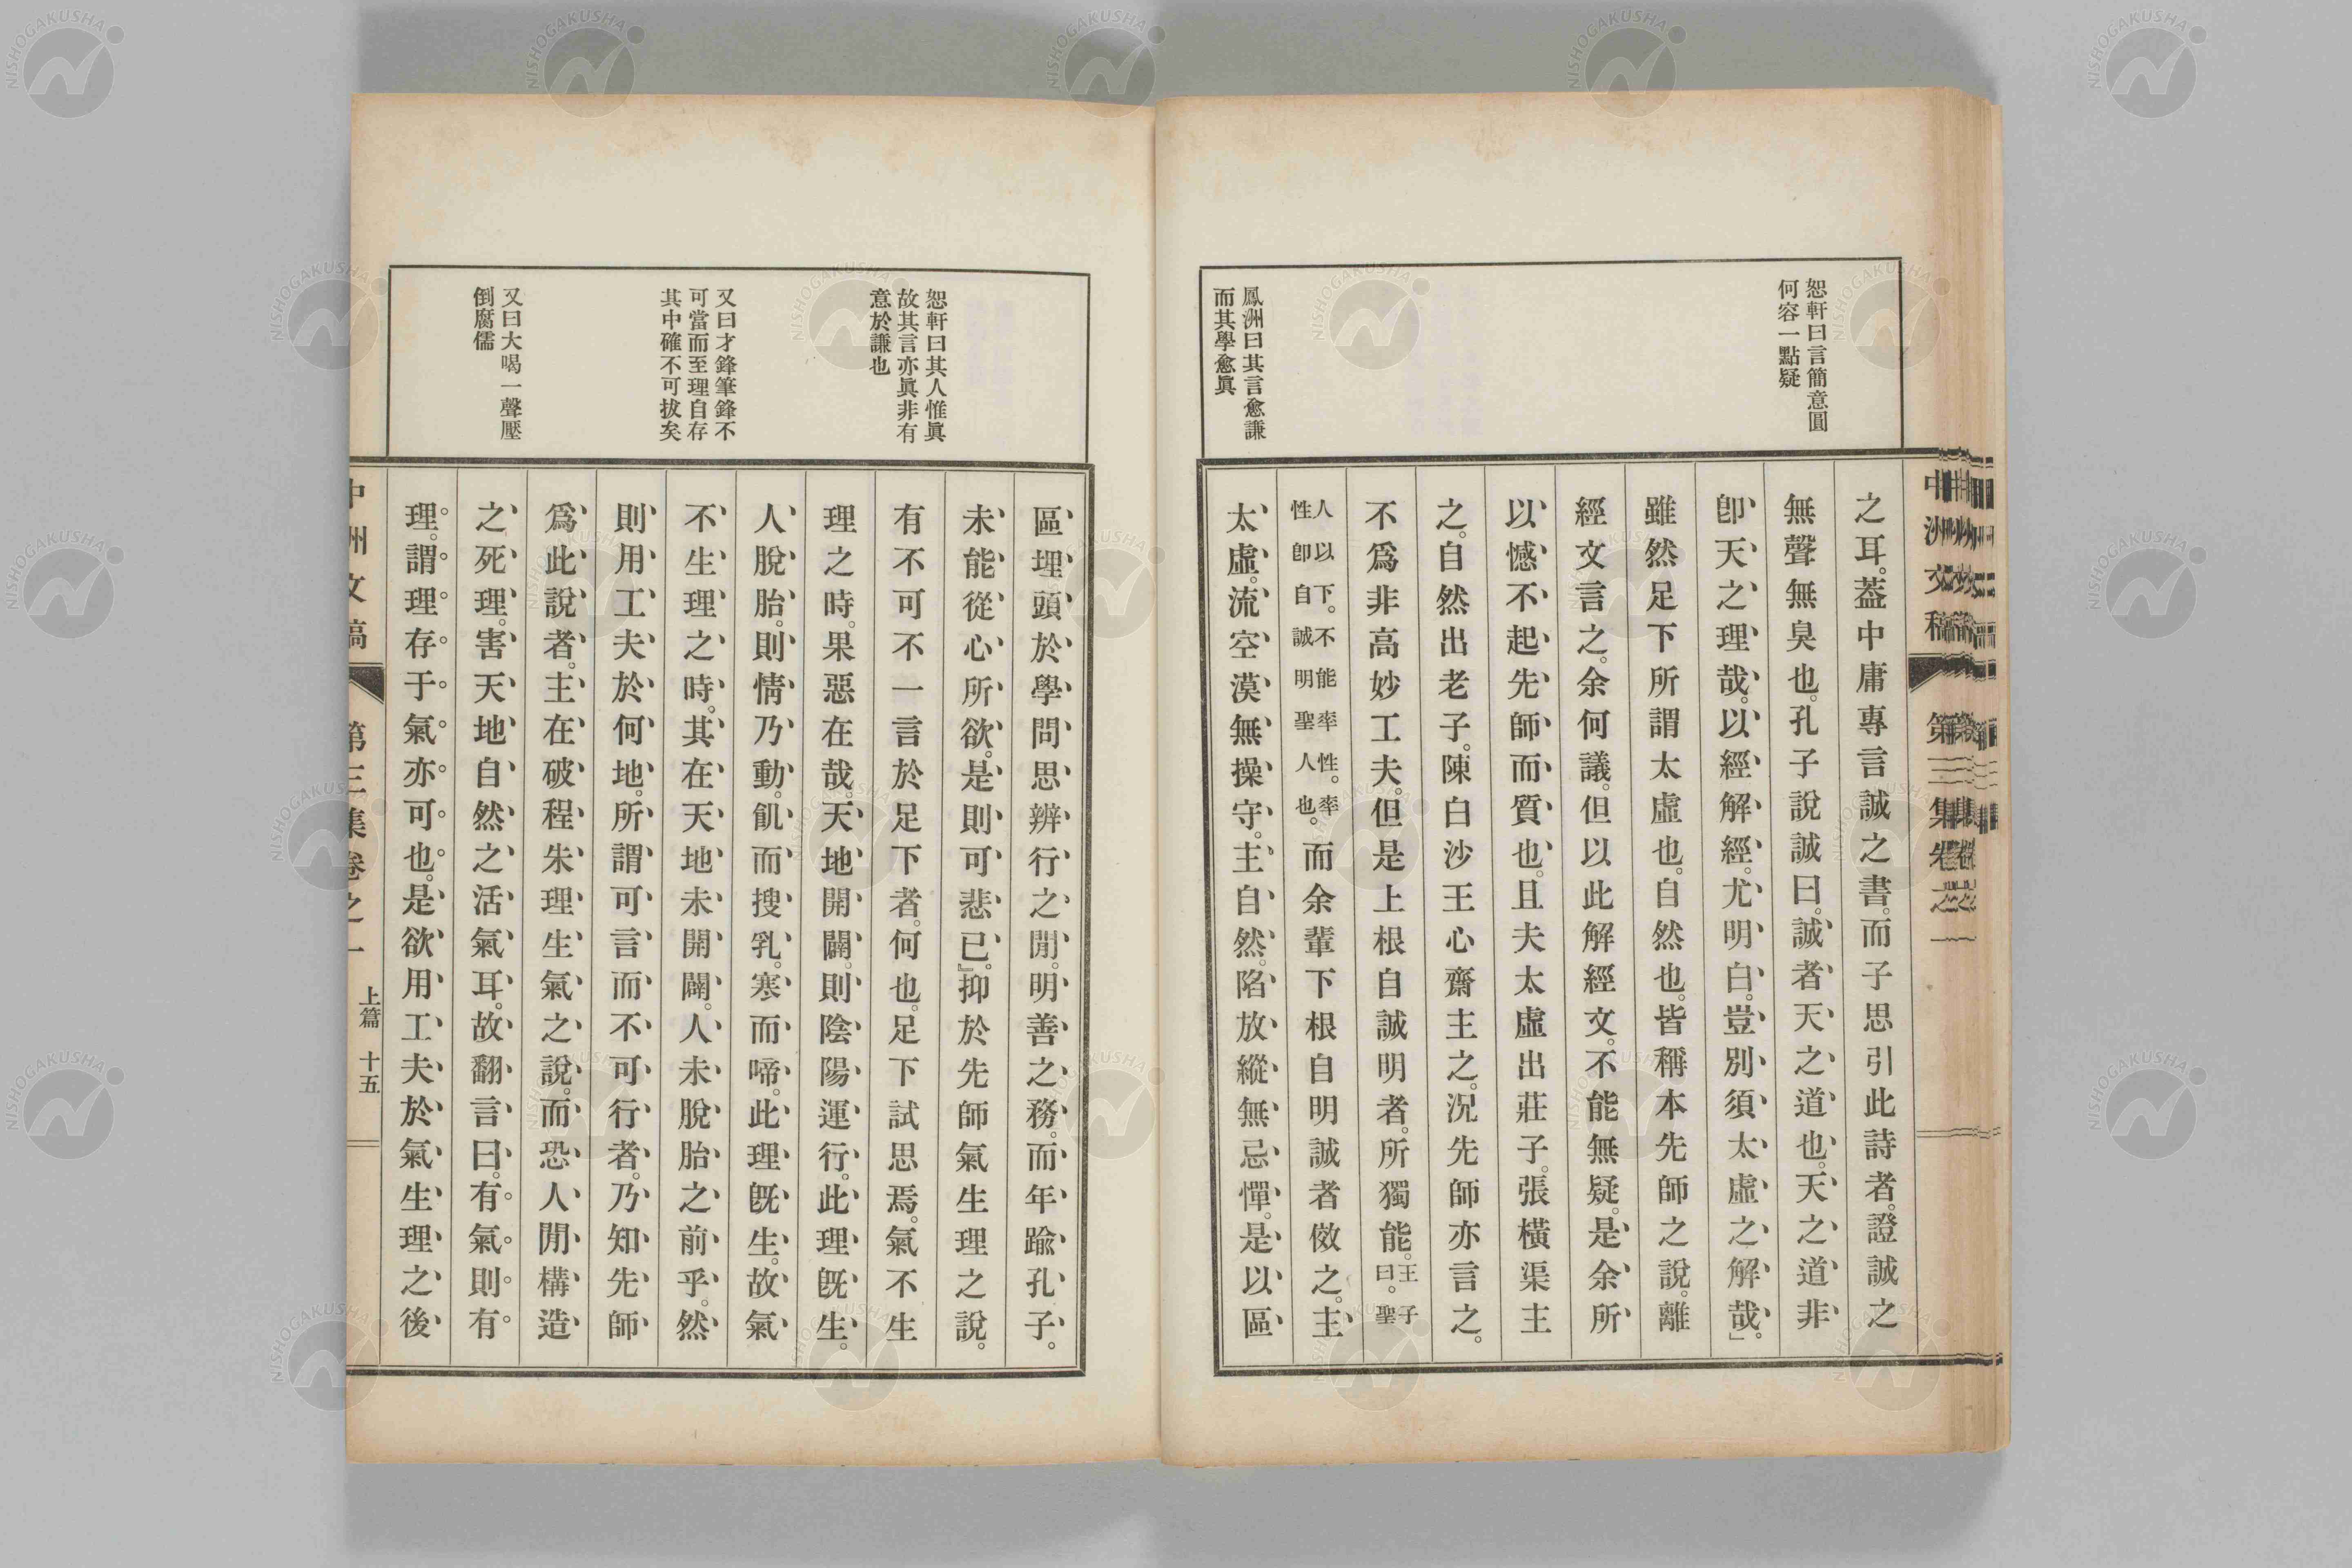 恕軒曰言簡意圓
何容一點疑
鳳洲曰其言愈謙
而其學愈眞
之耳。葢中庸專言誠之書。而子思引此詩者。證誠之
無聲無臭也。孔子說誠曰。誠者天之道也。天之道非
卽天之理哉。以經解經。尤明白。豈別須太虛之解哉。」
雖然足下所謂太虛也。自然也。皆稱本先師之說。離
經文言之。余何議。但以此解經文。不能無疑。是余所
以憾不起先師而質也。且夫太虛出莊子。張橫渠主
之。自然出老子。陳白沙王心齋主之。況先師亦言之。
不爲非高妙工夫。但是上根自誠明者。所獨能。王子曰。聖
人以下。不能率性。率性卽自誠明聖人也。而余輩下根自明誠者倣之。主
太虛。流空漠無操守。主自然。陷放縱無忌憚。是以區
中洲文稿 第三集卷之一
恕軒曰其人惟眞
故其言亦眞非有
意於謙也
又曰才鋒筆鋒不
可當而至理自存
其中確不可拔矣
又曰大喝一聲壓
倒腐儒
區埋頭於學問思辨行之閒。明善之務。而年踰孔子。
未能從心所欲。是則可悲已。』抑於先師氣生理之說。
有不可不一言於足下者。何也。足下試思焉。氣不生
理之時。果惡在哉。天地開闢。則陰陽運行。此理旣生。
人脫胎。則情乃動。飢而搜乳。寒而啼。此理旣生。故氣
不生理之時。其在天地未開闢。人未脫胎之前乎。然
則用工夫於何地。所謂可言而不可行者。乃知先師
爲此說者。主在破程朱理生氣之說。而恐人閒構造
之死理。害天地自然之活氣耳。故翻言曰。有氣則有
理。謂理存于氣亦可也。是欲用工夫於氣生理之後
中洲文稿 第三集卷之一 上篇 十五
NISHOGAKUSHA